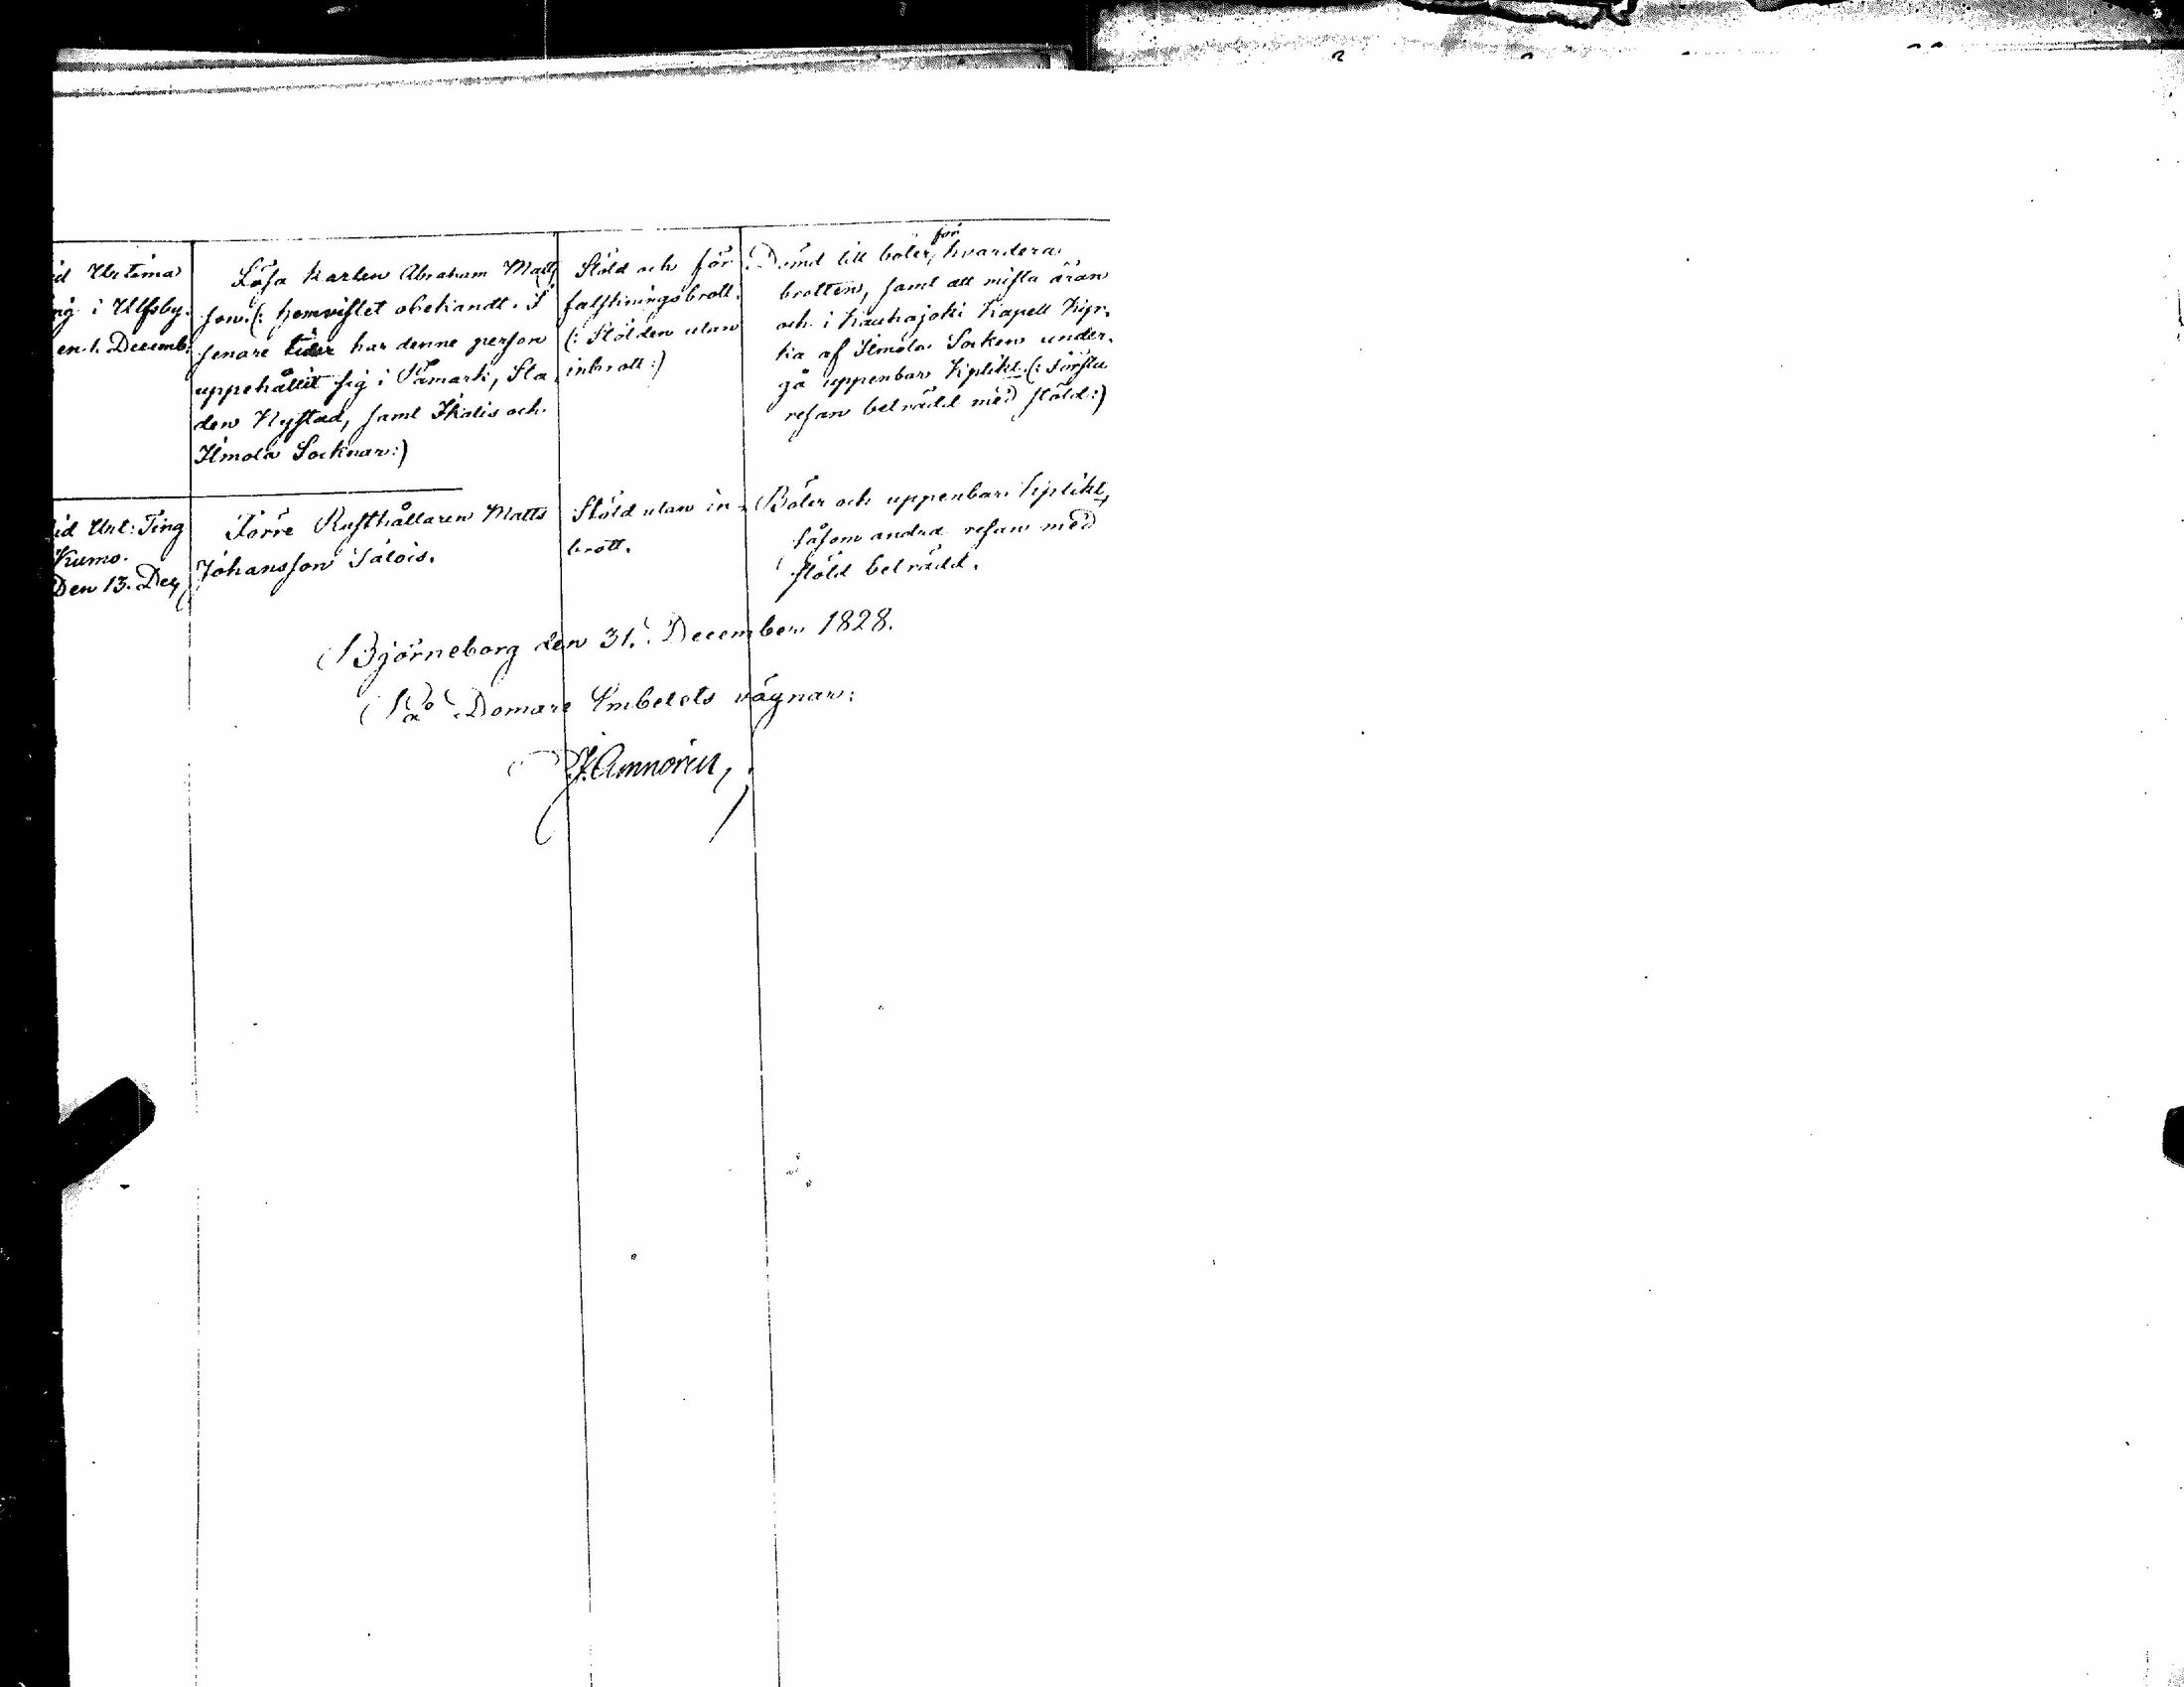 id Urtima
ng i Ulfsby.
en 1. Decemb:
Lösa karlen Abraham Matts
son. (: hemvistet obekandt. I
senare tider har denne person
uppehållit sig i Sämark, Sta
den Nystad, samt Ikalis och
Ilmola Socknar:)
Stöld och för
falskningsbrott.
(: Stölden utan
inbrott:)
Dömd till böter för hvardera
brotten, samt att mista äran
och i Kauhajoki Kapell Kyr-
ka af Ilmola Socken under-
gå uppenbar Kplikt. (: Första
resan beträdd med stöld:)
id Urt: Ting
Kumo.
Den 13. Dec
Förre Rusthållaren Matts
Johansson
Stöld utan in-
brott.
Böter och uppenbar Kplikt,
såsom andra resan med
stöld beträdd.
Björneborg den 31. December 1828.
På Domare Embetets vägnar: